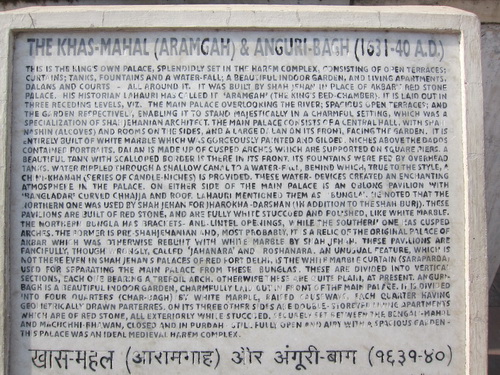 THE KHAS-MAHAL (ARAMGAH) & ANGURI-BAGH (1631-40 A.D.)
THIS IS THE KING'S OWN PALACE, SPLENDIDLY SET IN THE HAREM COMPLEX, CONSISTING OF OPEN TERRACES;
CURTAINS; TANKS, FOUNTAINS AND A WATER-FALL; A BEAUTIFUL INDOOR GARDEN, AND LIVING APARTMENTS,
DALANS AND COURTS - ALL AROUND IT. IT WAS BUILT BY SHAH JEHAN IN PLACE OF AKBAR'S RED STONE
PALACE. HIS HISTORIAN LAHAURI HAS CALLED IT 'ARAMGAH' (THE KING'S BED-CHAMBER). IT IS LAID OUT IN
THREE RECEDING LEVELS, VIZ. THE MAIN PALACE OVERLOOKING THE RIVER; SPACIOUS OPEN TERRACES; AND
THE GARDEN RESPECTIVELY, ENABLING IT TO STAND MAJESTICALLY IN A CHARMFUL SETTING, WHICH WAS A
SPECIALIZATION OF SHAH JEHANIAN ARCHITECT. THE MAIN PALACE CONSISTS OF A CENTRAL HALL, WITH SHA-
NASHIN (ALCOVES) AND ROOMS ON THE SIDES, AND A LARGE DALAN ON ITS FRONT, FACING THE GARDEN. IT IS
ENTIRELY BUILT OF WHITE MARBLE WHICH WAS GORGEOUSLY PAINTED AND GILDED. NICHES ABOVE THE DADOS
CONTAINED PORTRAITS. DALAN IS MADE UP OF CUSPED ARCHES WHICH ARE SUPPORTED ON SQUARE PIERS. A
BEAUTIFUL TANK WITH SCALLOPED BORDER IS THERE IN ITS FRONT. ITS FOUNTAINS WERE FED BY OVERHEAD
TANKS. WATER RIPPLED THROUGH A SHALLOW CANAL TO A WATER-FALL, BEHIND WHICH, TRUE TO THE STYLE, A
CHINIKHANAH (SERIES OF CANDLE-NICHES) IS PROVIDED. THESE WATER-DEVICES CREATED AN ENCHANTING
ATMOSPHERE IN THE PALACE. ON EITHER SIDE OF THE MAIN PALACE IS AN OBLONG PAVILION WITH
'BANGALADAR' CURVED CHAJJA AND ROOF. LAHAURI MENTIONED THEM AS 'BUNGLA'. HE NOTED THAT THE
NORTHERN ONE WAS USED BY SHAH JEHAN FOR JHAROKHA-DARSHAN (IN ADDITION TO THE SHAH BURJ). THESE
PAVILIONS ARE BUILT OF RED STONE, AND ARE FULLY WHITE STUCCOED AND POLISHED, LIKE WHITE MARBLE.
THE NORTHERN BUNGLA HAS BRACKETS-AND-LINTEL OPENINGS, WHILE THE SOUTHERN ONE HAS CUSPED
ARCHES. THE FORMER IS PRE-SHAHJEHANIAN AND, MOST PROBABLY, IT IS A RELIC OF THE ORIGINAL PALACE OF
AKBAR WHICH WAS OTHERWISE REBUILT WITH WHITE MARBLE BY SHAH JEHAN. THESE PAVILIONS ARE
FANCIFULLY, THOUGH WRONGLY, CALLED 'JAHANARA' AND 'ROSHANARA'. AN UNUSUAL FEATURE, WHICH IS
NOT THERE EVEN IN SHAH JEHAN'S PALACES OF RED FORT DELHI, IS THE WHITE MARBLE CURTAIN (SARAPARDA)
USED FOR SEPARATING THE MAIN PALACE FROM THESE BUNGLAS. THESE ARE DIVIDED INTO VERTICAL
SECTIONS, EACH ONE BEARING A TREFOIL ARCH. OTHERWISE THESE ARE QUITE PLAIN, AT PRESENT. ANGURI-
BAGH IS A BEAUTIFUL INDOOR GARDEN, CHARMFULLY LAID OUT IN FRONT OF THE MAIN PALACE. IT IS DIVIDED
INTO FOUR QUARTERS (CHAR-BAGH) BY WHITE MARBLE, RAISED CAUSEWAYS, EACH QUARTER HAVING
GEOMETRICALLY DRAWN PARTERRES. ON ITS THREE OTHER SIDES ARE DOUBLE-STOREYED LIVING APARTMENTS
WHICH ARE OF RED STONE, ALL EXTERIORLY WHITE STUCCOED. SECURELY SET BETWEEN THE BENGALI-MAHAL
AND MACHCHHI-BHAWAN, CLOSED AND IN PURDAH, STILL FULLY OPEN AND AIRY WITH A SPACIOUS GARDEN-
THIS PALACE WAS AN IDEAL MEDIEVAL HAREM COMPLEX.
खास-महल (आरामगाह) और अंगूरी-बाग (१६३१-४०)